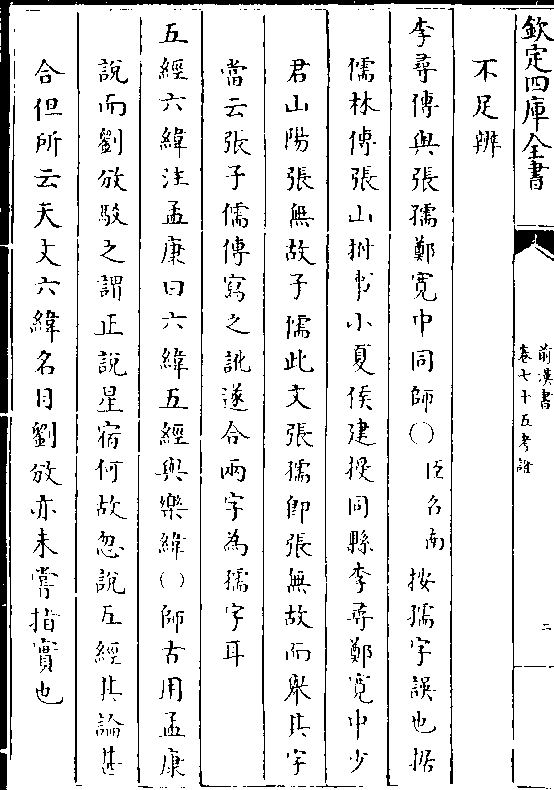 欽定四庫全書
前漢書
卷七十五考證
二
不足辨
李尋傳與張孺鄭寛中同師〇臣召南按孺字誤也据
儒林傳張山拊事小夏侯建授同縣李尋鄭寛中少
君山陽張無故子儒此文張孺卽張無故而舉其字
當云張子儒傳寫之訛遂合兩字為孺字耳
五經六緯注孟康曰六緯五經與樂緯〇師古用孟康
說而劉攽駁之謂正說星宿何故忽說五經其論甚
合但所云天文六緯名目劉攽亦未嘗指實也